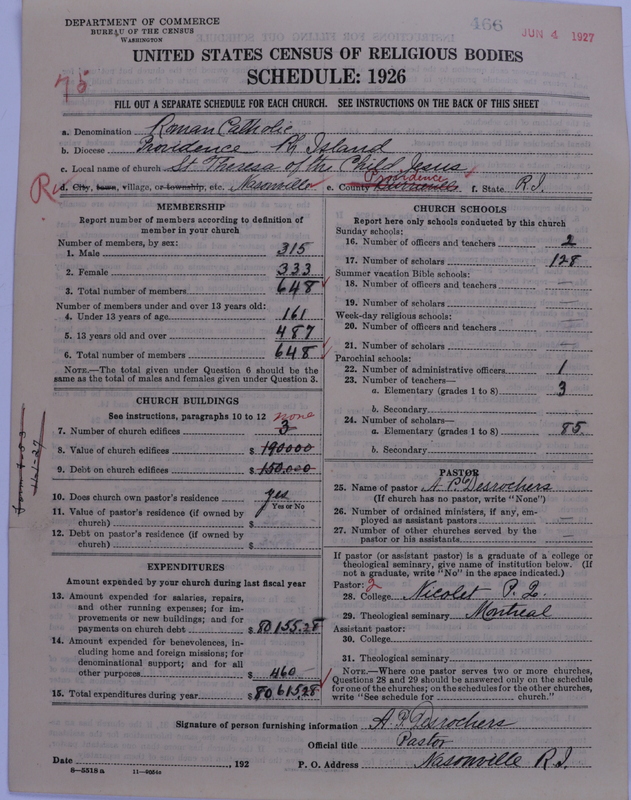 DEPARTMENT OF COMMERCE
BUREAU OF THE CENSUS
WASHINGTON
466
JUN 4 1927
UNITED STATES CENSUS OF RELIGIOUS BODIES
SCHEDULE: 1926
75
FILL OUT A SEPARATE SCHEDULE FOR EACH CHURCH. SEE INSTRUCTIONS ON THE BACK OF THIS SHEET
a. Denomination Roman Catholic
b. Diocese Providence R. Island
c. Local name of church St. Theresa of the Child Jesus
R d. City, town, village, or township, etc. Nasonville e. County Providence f. State R.I.
MEMBERSHIP
Report number of members according to definition of
member in your church
Number of members, by sex:
1. Male 315
2. Female 333
3. Total number of members 648
Number of members under and over 13 years old:
4. Under 13 years of age 161
5. 13 years old and over 487
6. Total number of members 648
NOTE.—The total given under Question 6 should be
same as the total of males and females given under Question 3.
CHURCH BUILDINGS
See instructions, paragraphs 10 to 12
none
7. Number of church edifices 3
8. Value of church edifices $ 190000
9. Debt on church edifices $ 150.000
10. Does church own pastor's residence yes
Yes or No
11. Value of pastor's residence (if owned by
church) $
12. Debt on pastor's residence (if owned by
church) $
EXPENDITURES
Amount expended by your church during last fiscal year
13. Amount expended for salaries, repairs,
and other running expenses; for im-
provements or new buildings; and for
payments on church debt $ 80155.28
14. Amount expended for benevolences, in-
cluding home and foreign missions; for
denominational support; and for all
other purposes $ 460 —
15. Total expenditures during year $ 80615.28
CHURCH SCHOOLS
Report here only schools conducted by this church
Sunday schools:
16. Number of officers and teachers 2
17. Number of scholars 128
Summer vacation Bible schools:
18. Number of officers and teachers —
19. Number of scholars —
Week-day religious schools:
20. Number of officers and teachers —
21. Number of scholars —
Parochial schools:
22. Number of administrative officers 1
23. Number of teachers—
a. Elementary (grades 1 to 8) 3
b. Secondary
24. Number of scholars—
a. Elementary (grades 1 to 8) 85
b. Secondary
PASTOR
25. Name of pastor A. P. Desrochers
(If church has no pastor, write "None")
26. Number of ordained ministers, if any, em-
ployed as assistant pastors —
27. Number of other churches served by the
pastor or his assistants —
If pastor (or assistant pastor) is a graduate of a college or
theological seminary, give name of institution below. (If
not a graduate, write "No" in the space indicated.)
Pastor: 2
28. College Nicolet P. Q.
29. Theological seminary Montreal
Assistant pastor:
30. College
31. Theological seminary
NOTE.—Where one pastor serves two or more churches,
Questions 28 and 29 should be answered only on the schedule
for one of the churches; on the schedules for the other churches,
write "See schedule for church."
Signature of person furnishing information A. P. Desrochers
Official title Pastor
Date , 192 P. O. Address Nasonville R.I.
8—5518 a 11—9554